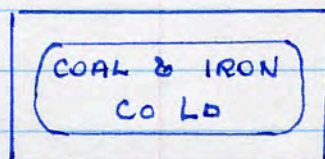 COAL & IRON
CO LD